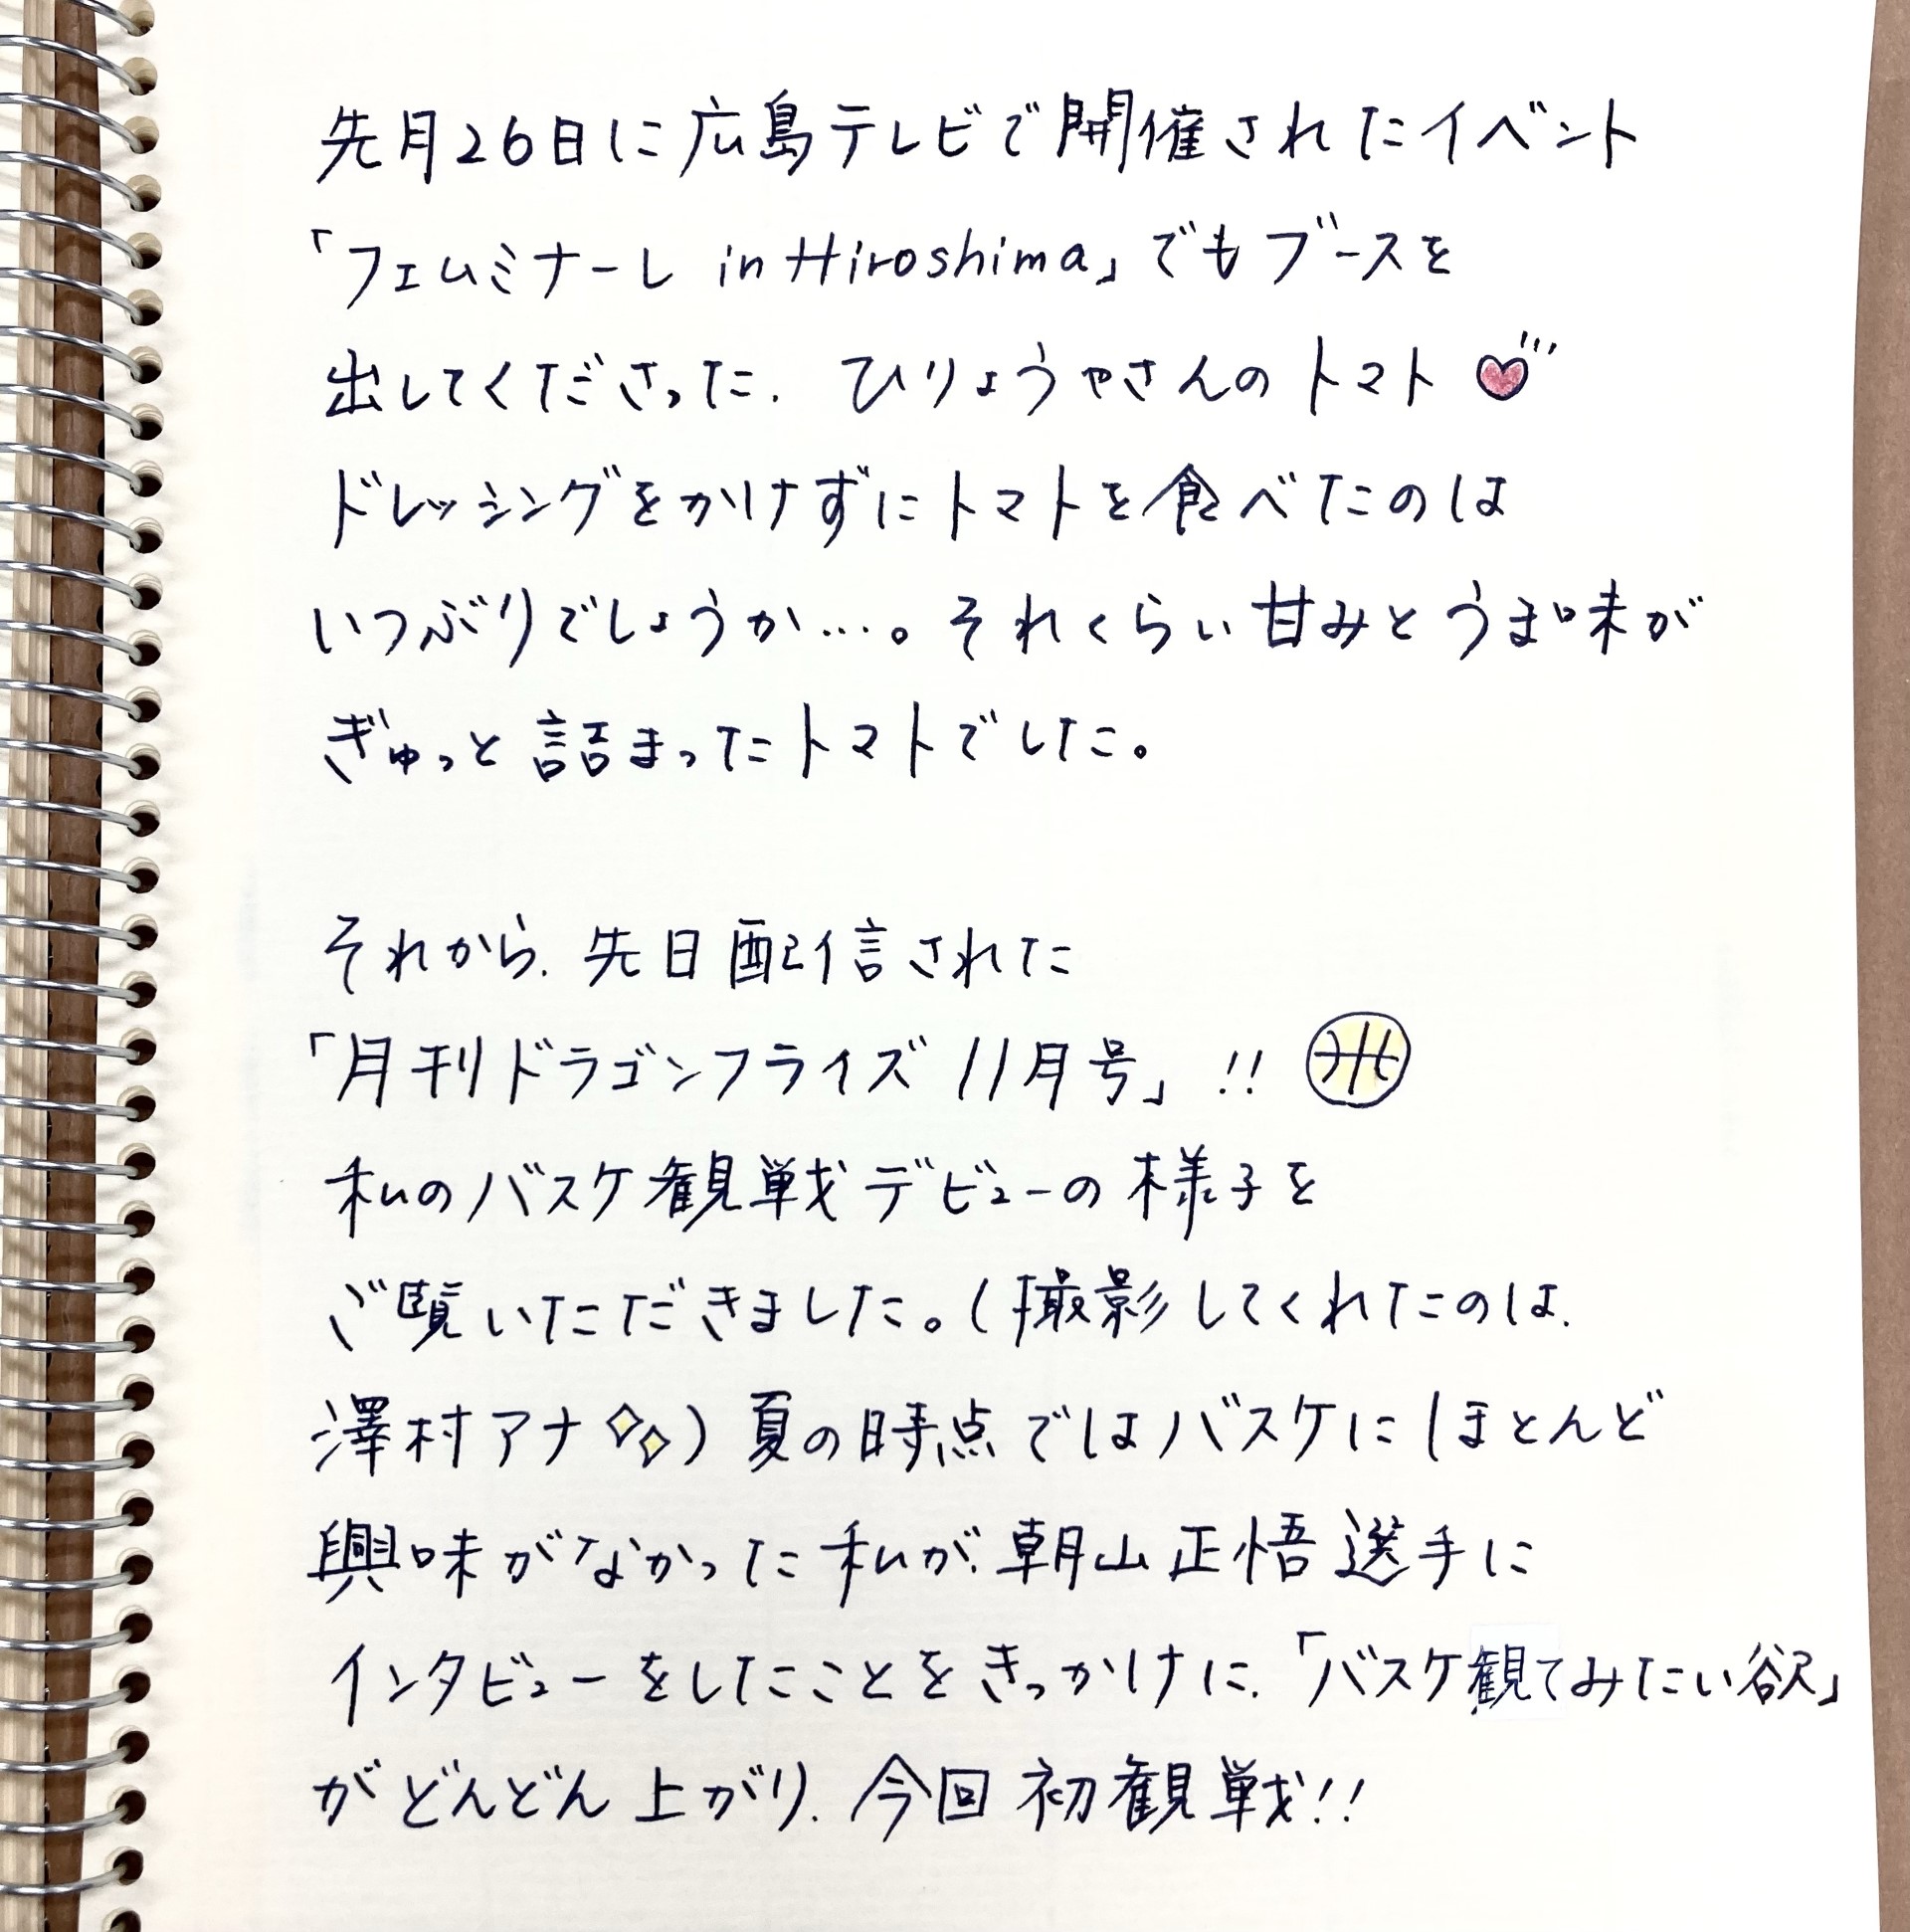 先月26日に広島テレビで開催されたイベント
「フェムミナーレ in Hiroshima」でもブースを
出してくださった、ひりょうやさんのトマト
ドレッシングをかけずにトマトを食べたのは
いつぶりでしょうか…。それくらい甘みとうま味が
ぎゅっと詰まったトマトでした。
それから、先日配信された
「月刊ドラゴンフライズ 11月号」!!
私のバスケ観戦デビューの様子を
ご覧いただきました。(撮影してくれたのは、
澤村アナ)夏の時点ではバスケにほとんど
興味がなかった私が、朝山正悟選手に
インタビューをしたことをきっかけに、「バスケ観てみたい欲」
がどんどん上がり、今回初観戦!!